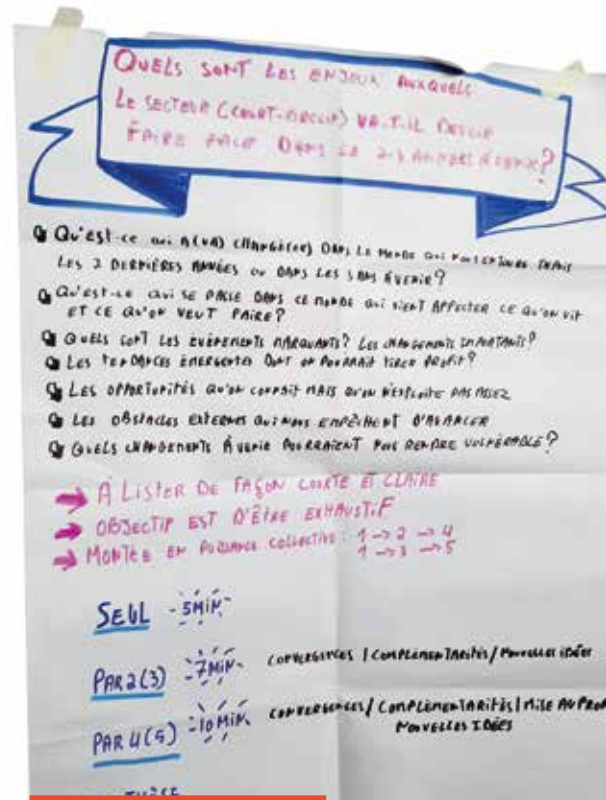 QUELS SONT LES ENJEUX AUXQUELS
LE SECTEUR VA-T-IL DEVOIR
FAIRE FACE DANS LE 2-3 ANNÉES À VENIR?
Qu'est-ce qui A(VA) CHANGÉ(ER) DANS LE MONDE QUI NOUS ENTOURE DEPUIS
LES 2 DERNIÈRES ANNÉES OU DANS LES 3 ANS À VENIR?
Qu'est-ce QUI SE PASSE DANS CE MONDE QUI VIENT AFFECTER CE QU'ON VIT
ET CE QU'ON VEUT FAIRE?
QUELS SONT LES ÉVÈNEMENTS MARQUANTS? LES CHANGEMENTS IMPORTANTS?
LES TENDANCES ÉMERGENTES DONT ON POURRAIT TIRER PROFIT?
LES OPPORTUNITÉS QU'ON CONNAIT MAIS QU'ON N'EXPLOITE PAS ASSEZ
LES OBSTACLES EXTERNES QUI NOUS EMPÊCHENT D'AVANCER
QUELS CHANGEMENTS À VENIR POURRAIENT NOUS RENDRE VULNÉRABLE?
→ A LISTER DE FAÇON COURTE ET CLAIRE
→ OBJECTIF EST D'ÊTRE EXHAUSTIF
→ MONTÉE EN PUISSANCE COLLECTIVE: 1 → 2 → 4
1 → 3 → 5
SEUL - 5 MIN -
PAR 2(3) - 7 MIN - CONVERGENCES / COMPLÉMENTARITÉS / NOUVELLES IDÉES
PAR 4(5) - 10 MIN - CONVERGENCES / COMPLÉMENTARITÉS / MISE AU PROP
NOUVELLES IDÉES